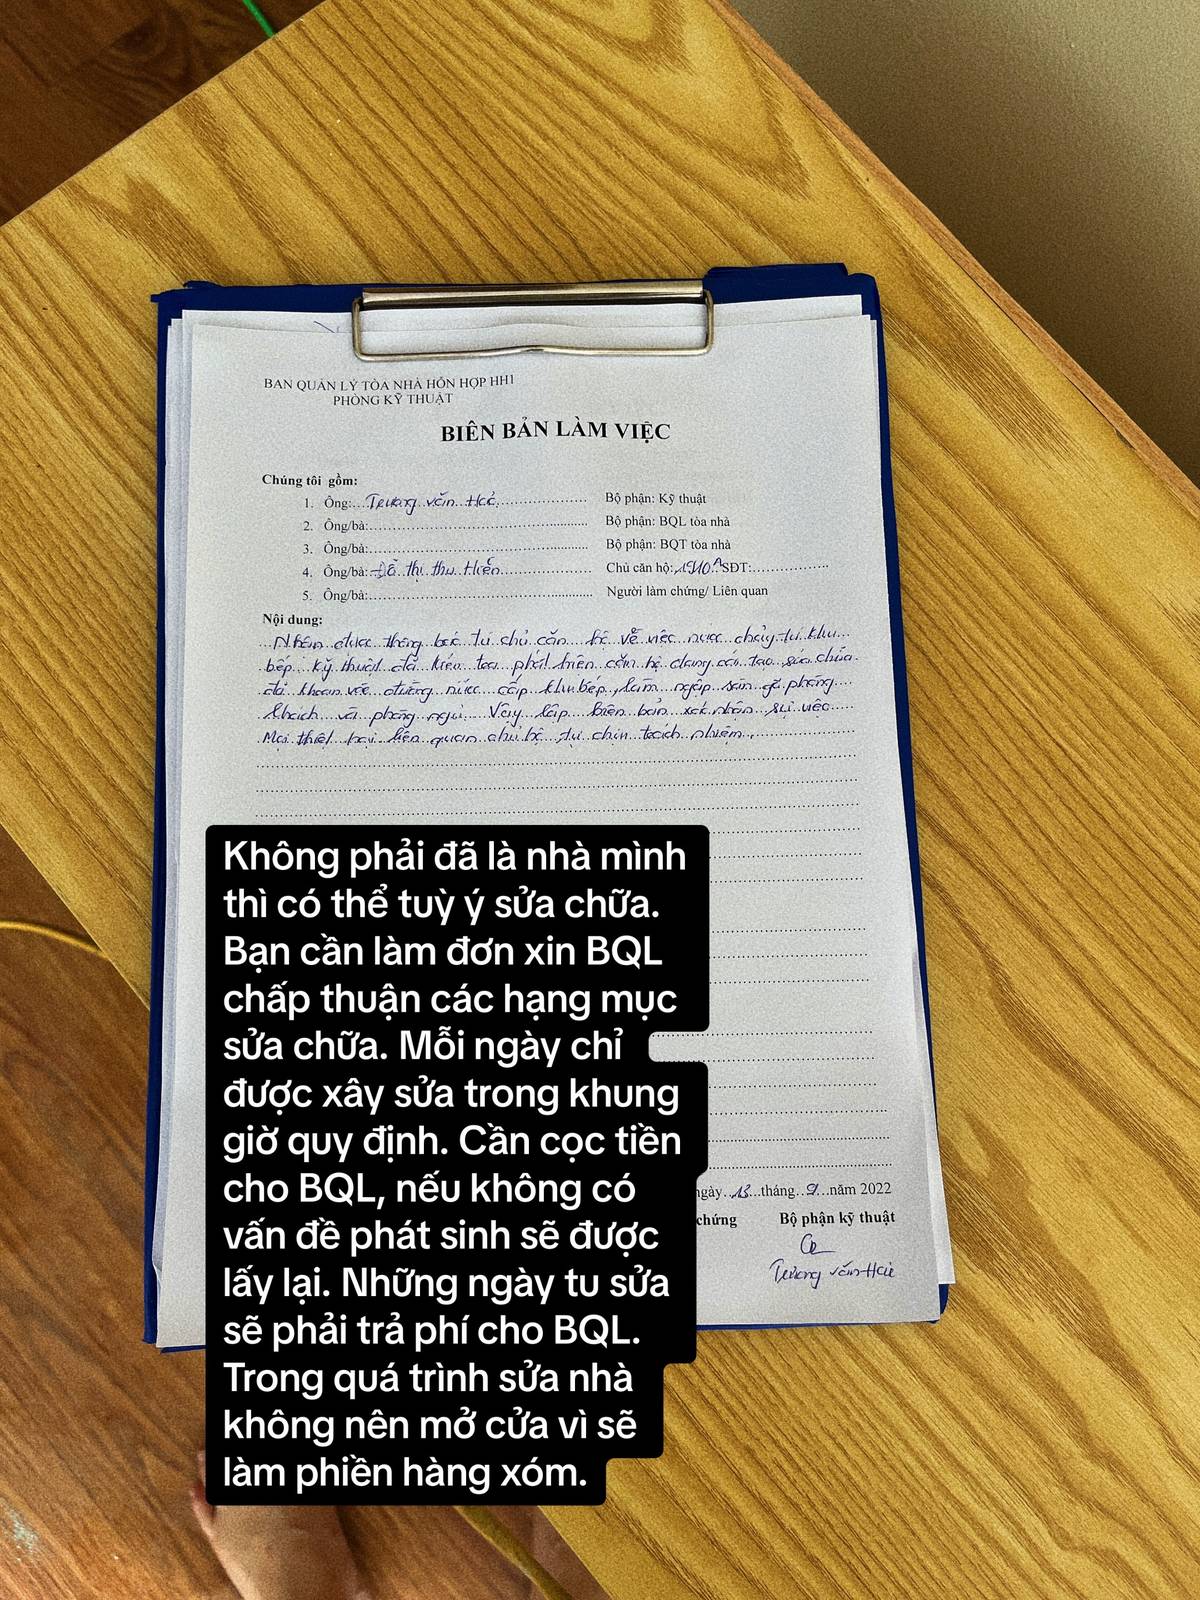 BAN QUẢN LÝ TÒA NHÀ HỖN HỢP HH1
PHÒNG KỸ THUẬT
BIÊN BẢN LÀM VIỆC
Chúng tôi gồm:
1. Ông:....Trương văn Hải................ Bộ phận: Kỹ thuật
2. Ông/bà:................................ Bộ phận: BQL tòa nhà
3. Ông/bà:................................ Bộ phận: BQT tòa nhà
4. Ông/bà: Đỗ thị thu Hiền................ Chủ căn hộ: 1910A SĐT:................
5. Ông/bà:................................ Người làm chứng/ Liên quan
Nội dung:
Nhận được thông báo từ chủ căn hộ về việc nước chảy từ khu
bếp. Kỹ thuật đã kiểm tra phát hiện căn hộ đang cải tạo, sửa chữa
đã khoan vào đường nước cấp khu bếp, làm ngập sàn gỗ phòng
khách và phòng ngủ. Vậy lập biên bản xác nhận sự việc
Mọi thiệt hại liên quan chủ hộ tự chịu trách nhiệm.
Không phải đã là nhà mình
thì có thể tuỳ ý sửa chữa.
Bạn cần làm đơn xin BQL
chấp thuận các hạng mục
sửa chữa. Mỗi ngày chỉ
được xây sửa trong khung
giờ quy định. Cần cọc tiền
cho BQL, nếu không có
vấn đề phát sinh sẽ được
lấy lại. Những ngày tu sửa
sẽ phải trả phí cho BQL.
Trong quá trình sửa nhà
không nên mở cửa vì sẽ
làm phiền hàng xóm.
ngày..13...tháng..9...năm 2022
chứng Bộ phận kỹ thuật
Trương văn Hải